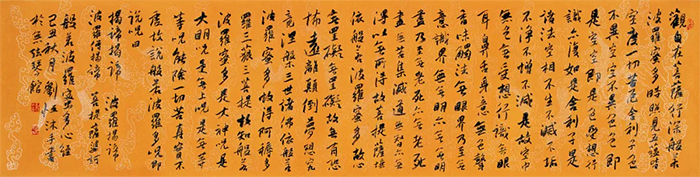 觀自在菩薩行深般若
波羅蜜多時照見五蘊皆
空度一切苦厄舍利子色
不異空空不異色色即
是空空即是色受想行
識亦復如是舍利子是
諸法空相不生不滅不垢
不淨不增不減是故空中
無色無受想行識無眼
耳鼻舌身意無色聲
香味觸法無眼界乃至無
意識界無無明亦無無明
盡乃至無老死亦無老死
盡無苦集滅道無智亦無
得以無所得故菩提薩埵
依般若波羅蜜多故心
無罣礙無罣礙故無有恐
怖遠離顛倒夢想究
竟涅槃三世諸佛依般若
波羅蜜多故得阿耨多
羅三藐三菩提故知般若
波羅蜜多是大神咒是
大明咒是無上咒是無等
等咒能除一切苦真實不
虛故說般若波羅蜜多咒即
說咒曰
揭諦揭諦 波羅揭諦
波羅僧揭諦 菩提薩婆訶
般若波羅蜜多心經
己丑秋月劉沐手書
於無弦琴館